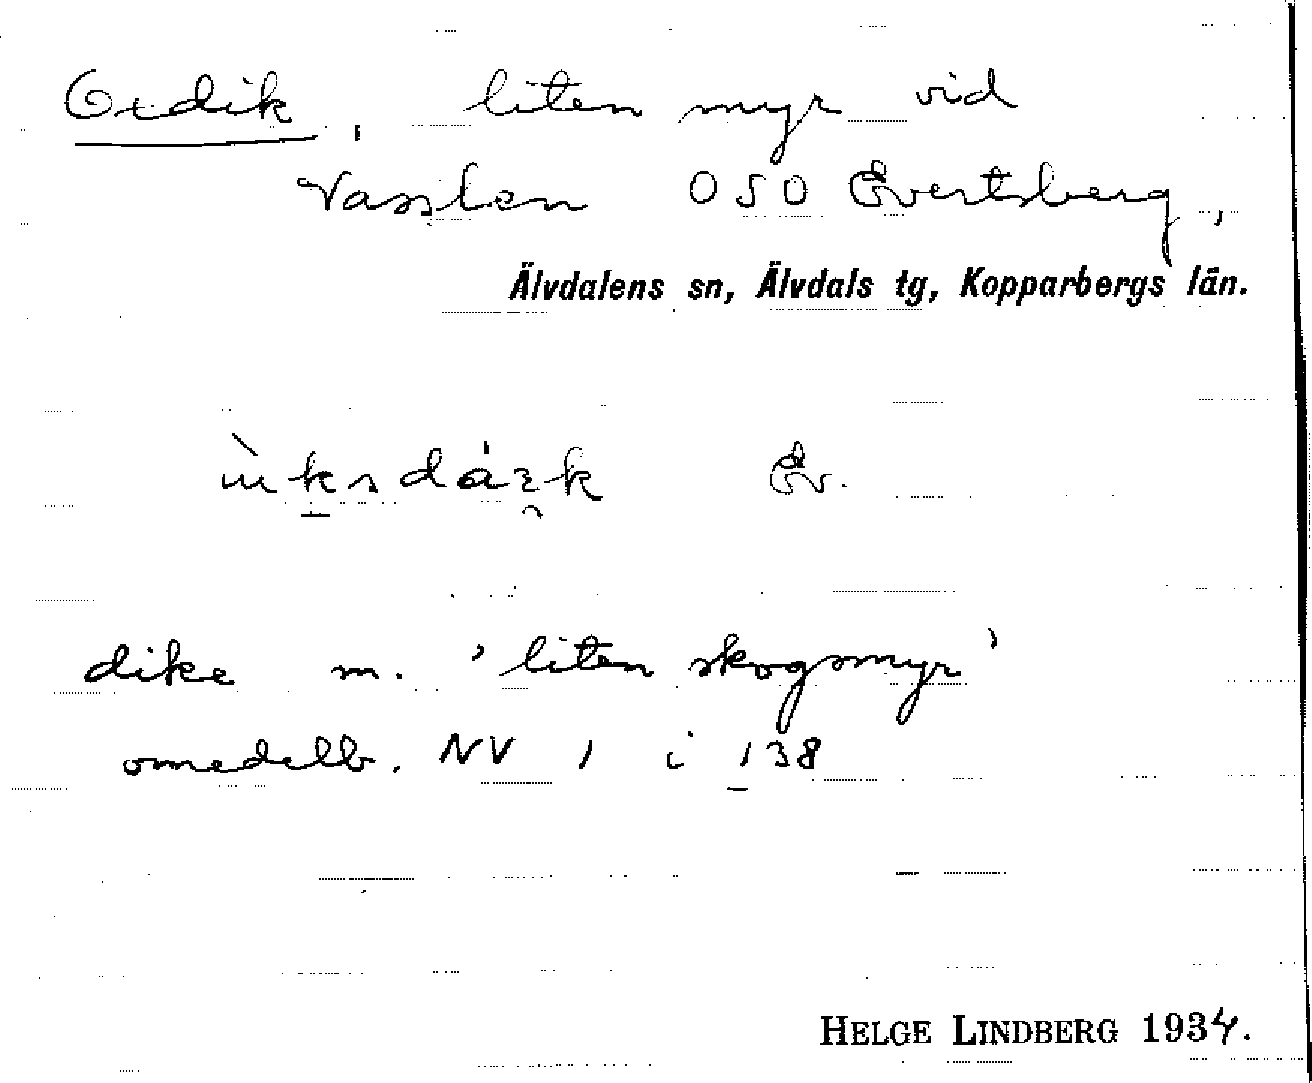 Oxdik, liten myr vid
Vasslan OSO Evertsberg,
Älvdalens sn, Älvdals tg, Kopparbergs län.
Ev.
dike m. 'liten skogsmyr'
omedelb. NV 1 i 138
HELGE LINDBERG 1934.